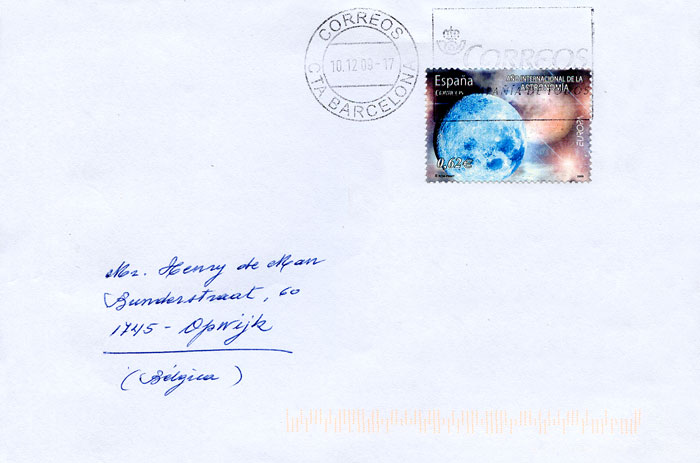 CORREOS
10.12.09-17
CTA BARCELONA
CORREOS
España
CORREOS
AÑO INTERNACIONAL DE LA
ASTRONOMÍA
EUROPA
0,62€
Mr. Henry de Man
Bunderstraat, 60
1745 - Opwijk
(Bélgica)